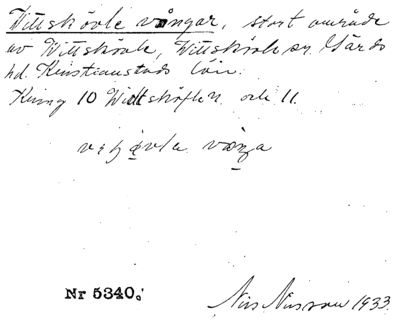 Vittskövle vångar, stort område
av Vittskövle, Vittskövle sn. Gärds
hd. Kristianstads län.
Kring 10 Widtsköflen och 11.
Nr 5340.
Nils Nilsson 1933.